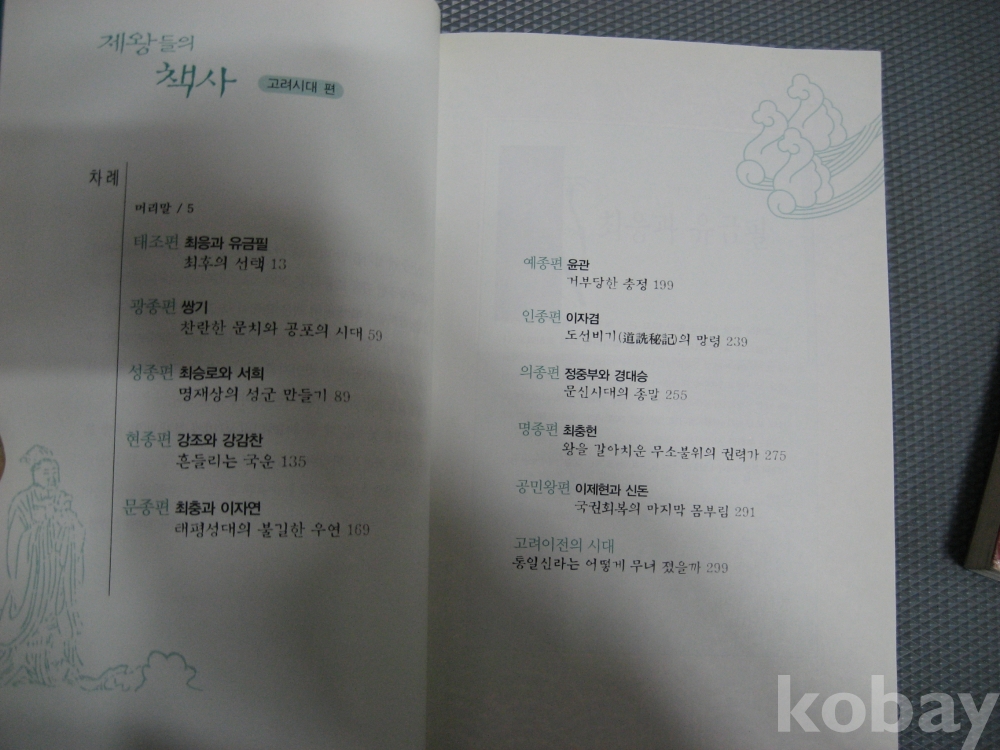 제왕들의
책사 고려시대 편
차례
머리말 / 5
태조편 최응과 유금필
최후의 선택 13
광종편 쌍기
찬란한 문치와 공포의 시대 59
성종편 최승로와 서희
명재상의 성군 만들기 89
현종편 강조와 강감찬
흔들리는 국운 135
문종편 최충과 이자연
태평성대의 불길한 우연 169
예종편 윤관
거부당한 충정 199
인종편 이자겸
도선비기(道詵秘記)의 망령 239
의종편 정중부와 경대승
문신시대의 종말 255
명종편 최충헌
왕을 갈아치운 무소불위의 권력가 275
공민왕편 이제현과 신돈
국권회복의 마지막 몸부림 291
고려이전의 시대
통일신라는 어떻게 무너 졌을까 299
kobay